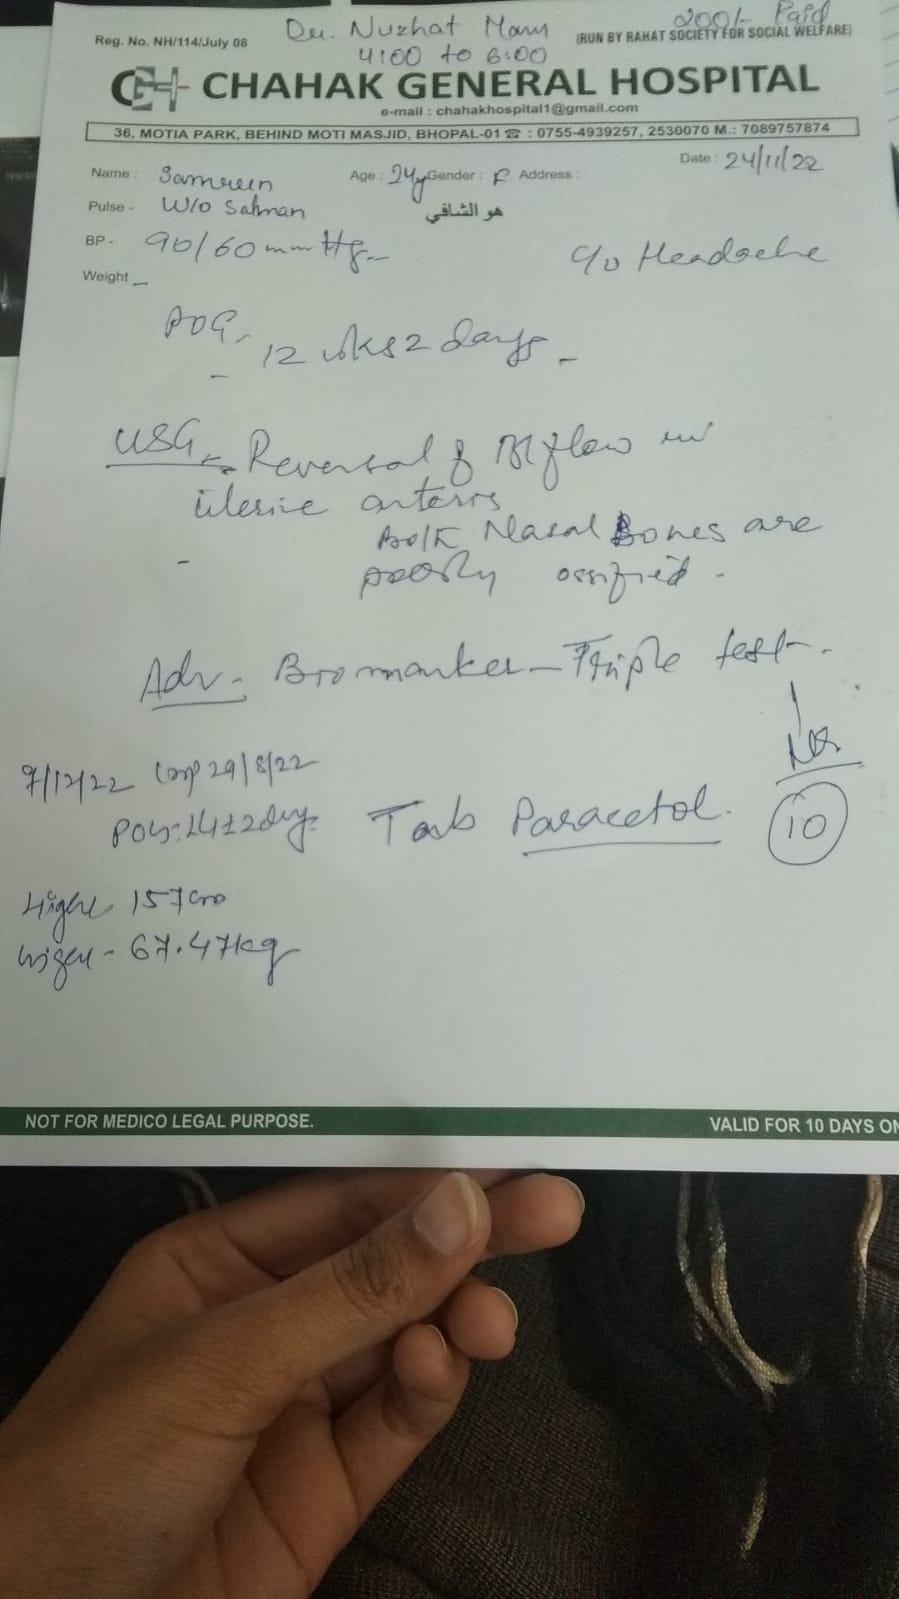 Dr. Nuzhat Mam
200/- Paid
Reg. No. NH/114/July 08
(RUN BY RAHAT SOCIETY FOR SOCIAL WELFARE)
4:00 to 6:00
CHAHAK GENERAL HOSPITAL
e-mail : chahakhospital1@gmail.com
36, MOTIA PARK, BEHIND MOTI MASJID, BHOPAL-01 ☎ : 0755-4939257, 2530070 M.: 7089757874
Date : 24/11/22
Name : Samreen Age : 24y Gender : F Address :
Pulse - W/o Salman
هو الشافي
BP - 90/60 mm Hg
c/o Headache
Weight
POG - 12 wks 2 days
USG - Reversal of Bl flow in
uterine
Both Nasal Bones are
poorly ossified
Adv - Biomarker - Triple test
7/12/22 29/8/22
Tab Paracetol.
10
157 cm
67.47kg
NOT FOR MEDICO LEGAL PURPOSE.
VALID FOR 10 DAYS ON